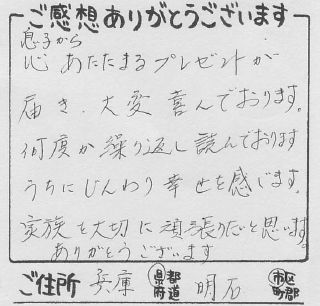 ご感想ありがとうございます
息子から
心あたたまるプレゼントが
届き、大変喜んでおります。
何度か繰り返し読んでおります
うちにじんわり幸せを感じます。
家族を大切に頑張りたいと思います。
ありがとうございます
ご住所 兵庫 都道府県 明石 市区町郡